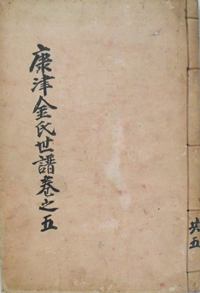 康津金氏世譜卷之五
共五